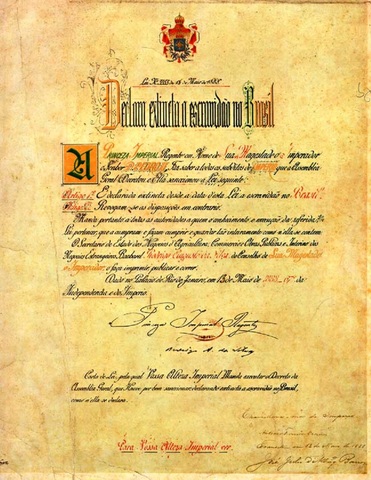 Lei Nº 3353 de 13 de Maio de 1888.
Declara extincta a escravidão no Brasil
A Princeza Imperial Regente em Nome de Sua Magestade o Imperador
o Senhor D. Pedro II Faz saber a todos os subditos do Imperio que a Assembléa
Geral Decretou e Ella sanccionou a Lei seguinte:
Artigo 1º É declarada extincta desde a data d'esta Lei a escravidão no Brazil.
Revogam-se as disposições em contrario.
Manda portanto a todas as autoridades a quem o conhecimento e execução da referida
Lei pertencer, que a cumpram e façam cumprir e guardar tão inteiramente como n'ella se contem.
O Secretario de Estado dos Negocios d'Agricultura, Commercio e Obras Publicas e Interino dos
Negocios Estrangeiros, Bacharel Rodrigo Augusto da Silva do Conselho de Sua Magestade
o Imperador, o faça imprimir, publicar e correr.
Dado no Palacio do Rio de Janeiro, em 13 de Maio de
Independencia e do Imperio.
Princeza Imperial Regente
Rodrigo A. da Silva
Carta de Lei, pela qual Vossa Alteza Imperial Manda executar o Decreto da
Assembléa Geral, que Houve por bem sanccionar declarando extincta a escravidão no Brazil,
como n'ella se declara.
Para Vossa Alteza Imperial ver.